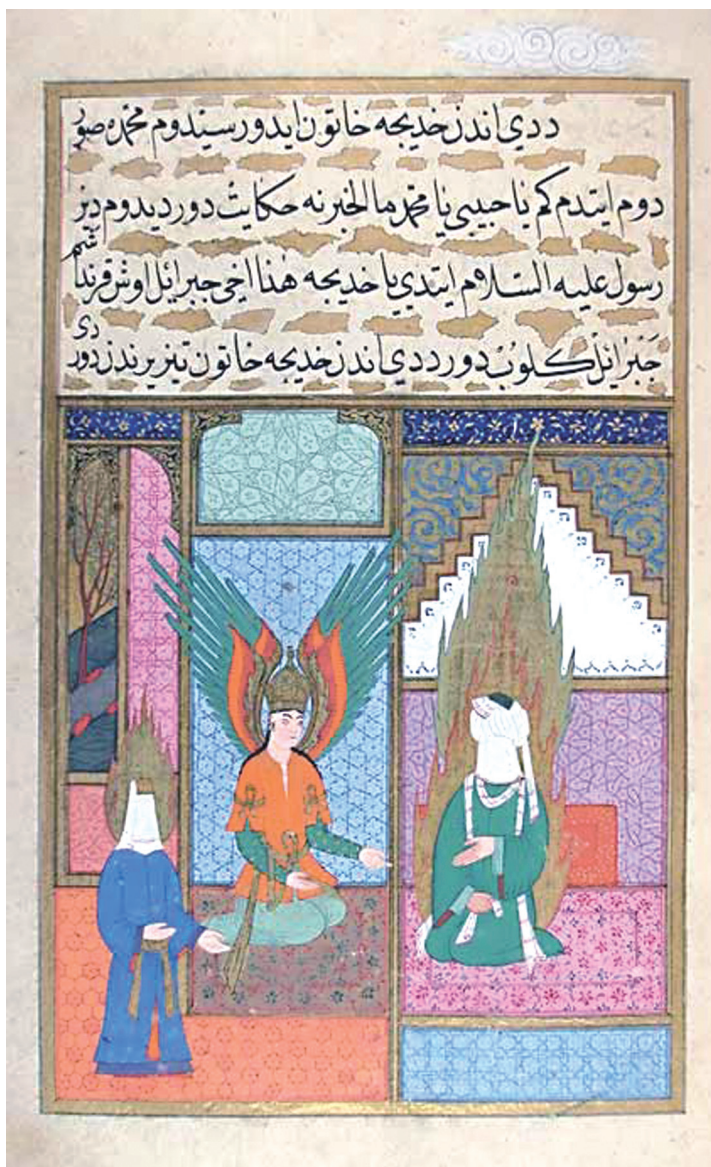 ددي اندن خديجه خاتون ايدور سيندوم محمده صور
دوم ايتدم كم يا حبيبي يا محمد ما الخبر نه حكايت دور ديدوم ديز
رسول عليه السلام ايتدي يا خديجه هذا اخي جبرائل اوش قرنداشم
جبرائل كلوب دور ددي اندن خديجه خاتون تيز يرندن دوردى